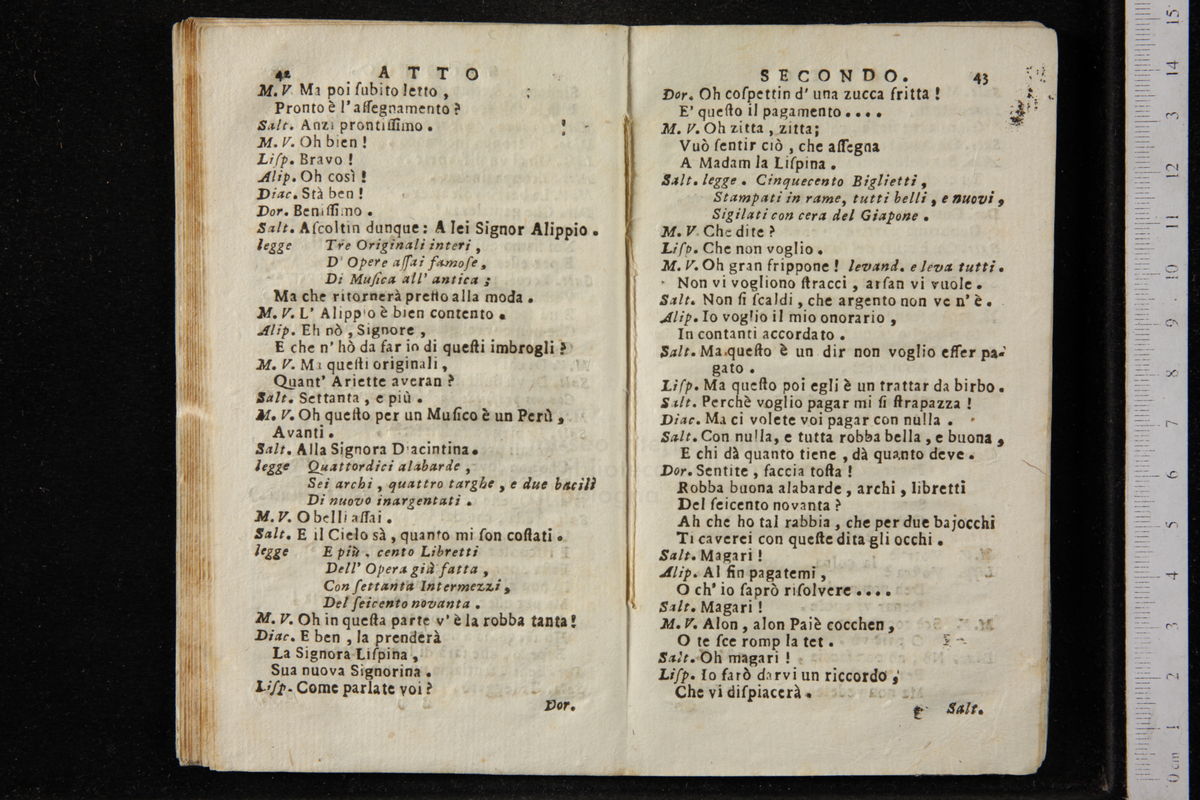 42 ATTO
M. V. Ma poi ſubito letto,
Pronto è l' aſſegnamento?
Salt. Anzi prontiſſimo.
M. V. Oh bien!
Liſp. Bravo!
Alip. Oh così!
Diac. Stà ben!
Dor. Beniſſimo.
Salt. Aſcoltin dunque: A lei Signor Alippio.
legge Tre Originali interi,
D' Opere aſſai famoſe,
Di Muſica all' antica;
Ma che ritornerà preſto alla moda.
M. V. L' Alippio è bien contento.
Alip. Eh nò, Signore,
E che n' hò da far io di queſti imbrogli?
M. V. Ma queſti originali,
Quant' Ariette averan?
Salt. Settanta, e più.
M. V. Oh queſto per un Muſico è un Perù,
Avanti.
Salt. Alla Signora Diacintina.
legge Quattordici alabarde,
Sei archi, quattro targhe, e due bacili
Di nuovo inargentati.
M. V. O belli aſſai.
Salt. E il Cielo sà, quanto mi ſon coſtati.
legge E più, cento Libretti
Dell' Opera già fatta,
Con ſettanta Intermezzi,
Del ſeicento novanta.
M. V. Oh in queſta parte v' è la robba tanta!
Diac. E ben, la prenderà
La Signora Liſpina,
Sua nuova Signorina.
Liſp. Come parlate voi?
Dor.
SECONDO. 43
Dor. Oh coſpettin d' una zucca fritta!
E' queſto il pagamento....
M. V. Oh zitta, zitta;
Vuò ſentir ciò, che aſſegna
A Madam la Liſpina.
Salt. legge. Cinquecento Biglietti,
Stampati in rame, tutti belli, e nuovi,
Sigilati con cera del Giapone.
M. V. Che dite?
Liſp. Che non voglio.
M. V. Oh gran frippone! levand. e leva tutti.
Non vi vogliono ſtracci, arſan vi vuole.
Salt. Non ſi ſcaldi, che argento non ve n' è.
Alip. Io voglio il mio onorario,
In contanti accordato.
Salt. Ma queſto è un dir non voglio eſſer pa-
gato.
Liſp. Ma queſto poi egli è un trattar da birbo.
Salt. Perchè voglio pagar mi ſi ſtrapazza!
Diac. Ma ci volete voi pagar con nulla.
Salt. Con nulla, e tutta robba bella, e buona,
E chi dà quanto tiene, dà quanto deve.
Dor. Sentite, faccia toſta!
Robba buona alabarde, archi, libretti
Del ſeicento novanta?
Ah che ho tal rabbia, che per due bajocchi
Ti caverei con queſte dita gli occhi.
Salt. Magari!
Alip. Al fin pagatemi,
O ch' io ſaprò riſolvere....
Salt. Magari!
M. V. Alon, alon Paiè cocchen,
O te ſce romp la tet.
Salt. Oh magari!
Liſp. Io farò darvi un riccordo,
Che vi diſpiacerà.
Salt.